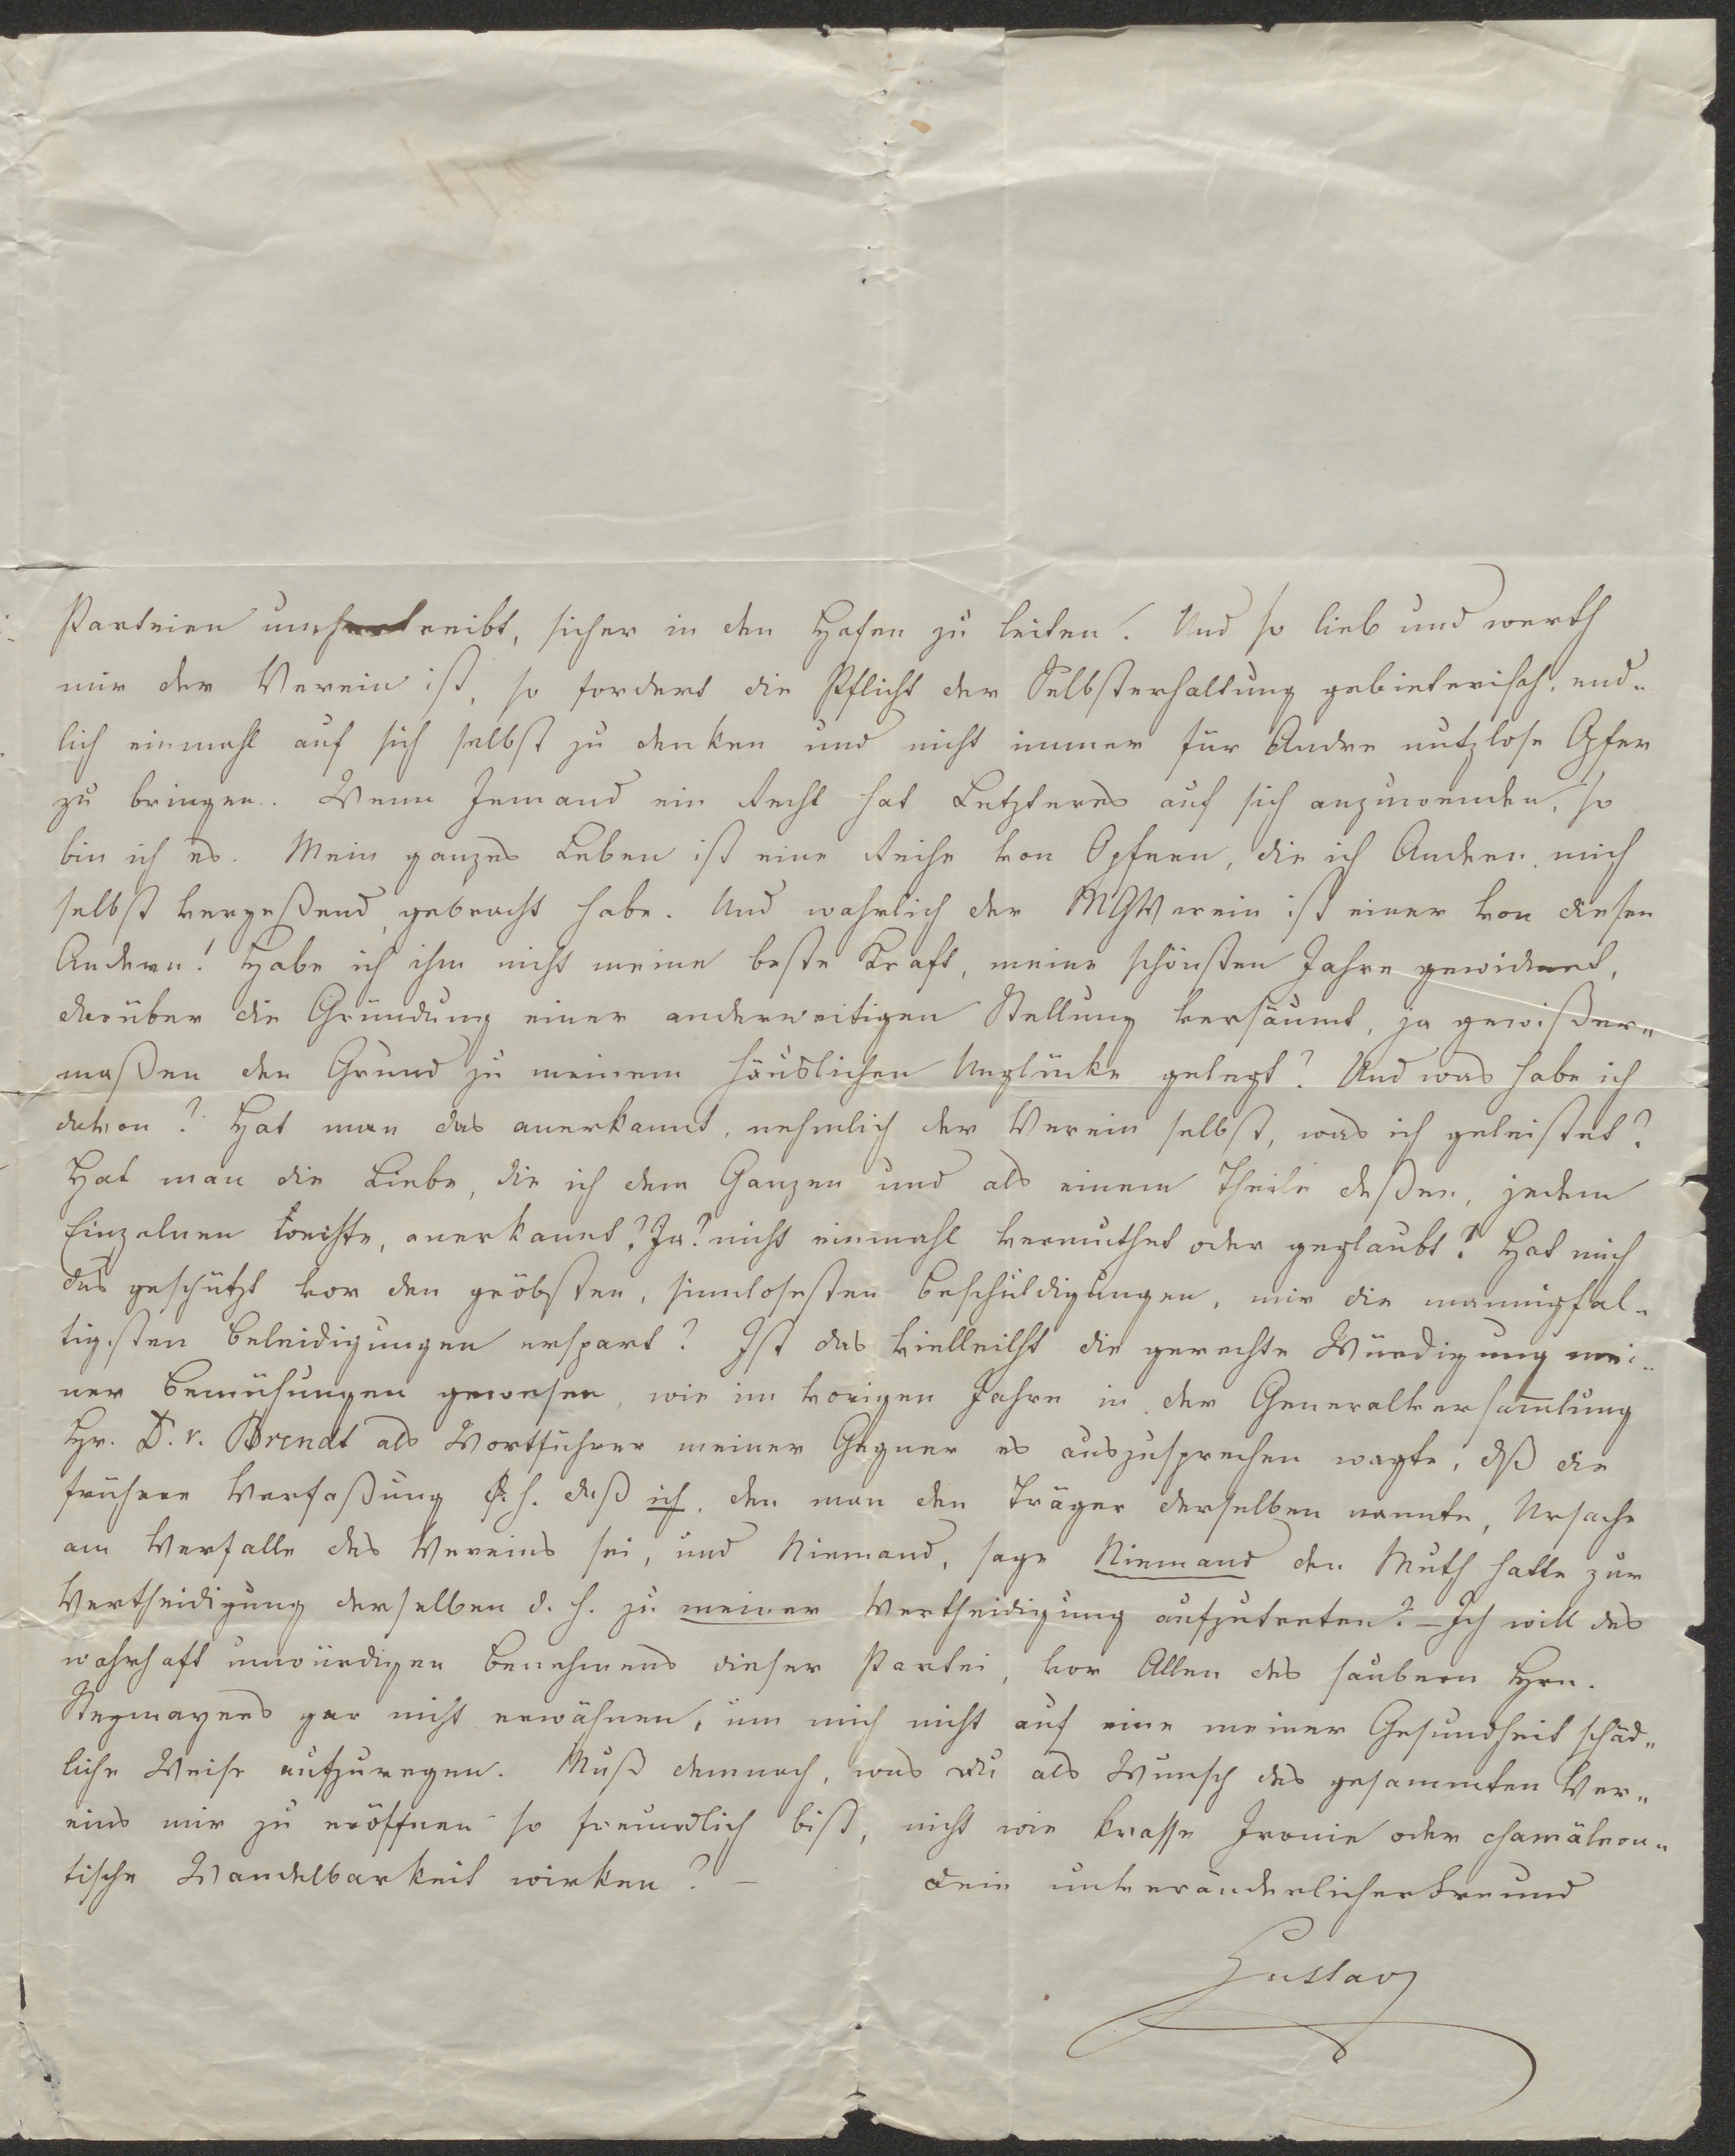 Parteien umhertreibt, sicher in den Hafen zu leiten. Und so lieb und werth
mir der Verein ist, so fordert die Pflicht der Selbsterhaltung gebieterisch, end-
lich einmahl auf sich selbst zu denken und nicht immer für Andre nutzlose Opfer
zu bringen. Wenn Jemand ein Recht hat Letzteres auf sich anzuwenden, so
bin ich es. Mein ganzes Leben ist eine Reihe von Opfern, die ich Andern, mich
selbst vergeßend, gebracht habe. Und wahrlich der MGVerein ist einer von diesen
Andern! Habe ich ihm nicht meine beste Kraft, meine schönsten Jahre gewidmet,
darüber die Gründung einer anderweitigen Stellung versäumt, ja gewißer-
maßen den Grund zu meinem häuslichen Unglücke gelegt? Und was habe ich
davon? Hat man das anerkannt, nehmlich der Verein selbst, was ich geleistet?
Hat man die Liebe, die ich dem Ganzen und als einem Theile deßen, jedem
Einzelnen weihte, anerkannt? Ja? nicht einmahl vermuthet oder geglaubt? Hat mich
das geschützt vor den gröbsten, sinnlosesten Beschuldigungen, mir die mannigfal-
tigsten Beleidigungen erspart? Ist das vielleicht die gerechte Würdigung mei-
ner Bemühungen gewesen, wie im vorigen Jahre in der Generalversammlung
Hr. D. v. Arendt als Wortführer meiner Gegner es auszusprechen wagte, dß die
frühere Verfaßung d. h. daß ich, den man den Träger derselben nannte, Ursache
am Verfalle des Vereins sei, und Niemand, sage Niemand den Muth hatte zur
Vertheidigung derselben d. h. zu meiner Vertheidigung aufzutreten? – Ich will des
wahrhaft unwürdigen Benehmens dieser Partei, vor Allen des saubern Hrn.
Stegmayers gar nicht erwähnen, um mich nicht auf eine meiner Gesundheit schäd-
liche Weise aufzuregen. Muß demnach, was Du als Wunsch des gesammten Ver-
eins mir zu eröffnen so freundlich bist, nicht wie krasse Ironie oder chamäleon-
tische Wandelbarkeit wirken? –
Dein unveränderlicher Freund
Gustav